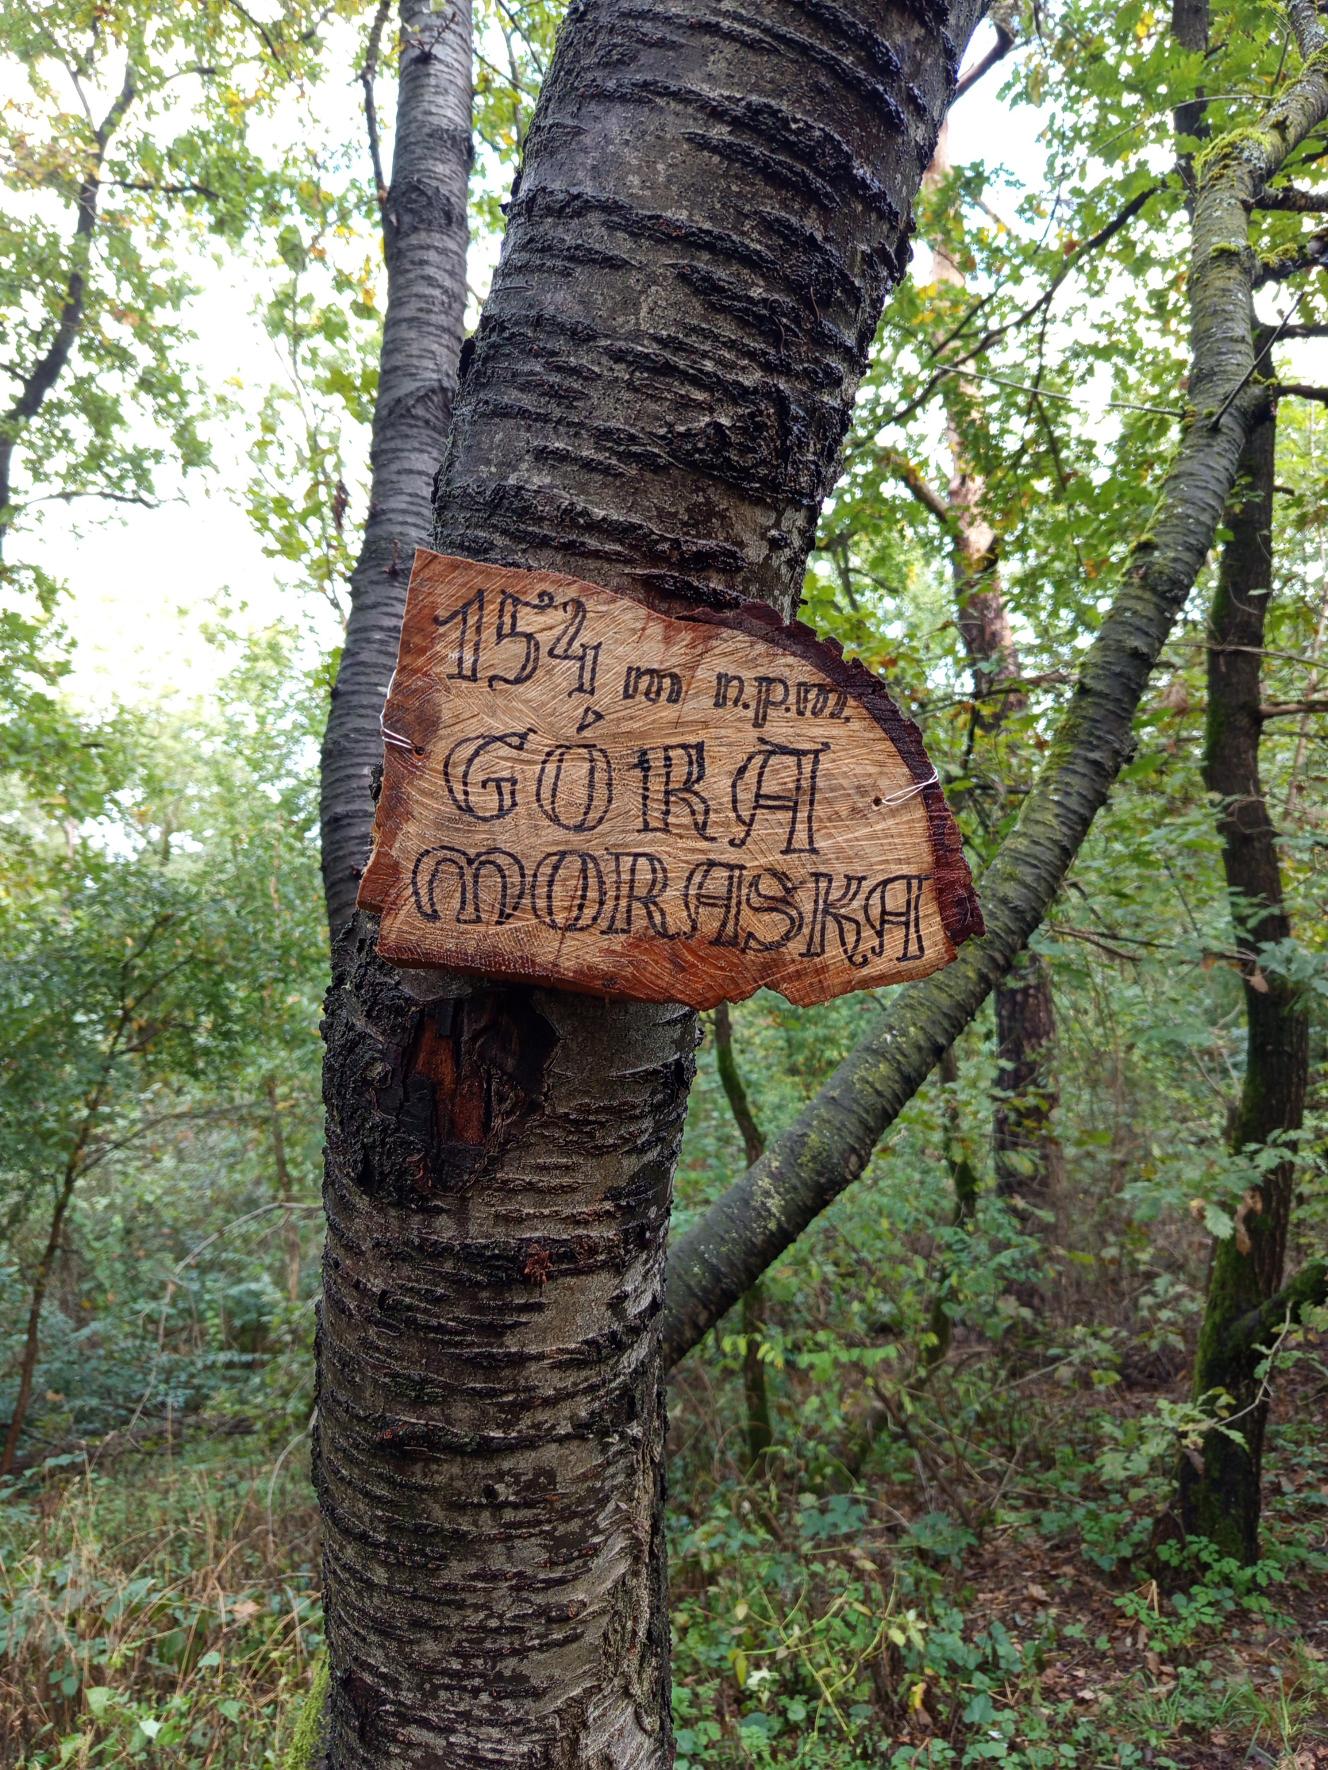 154 m n.p.m.
GÓRA
MORASKA